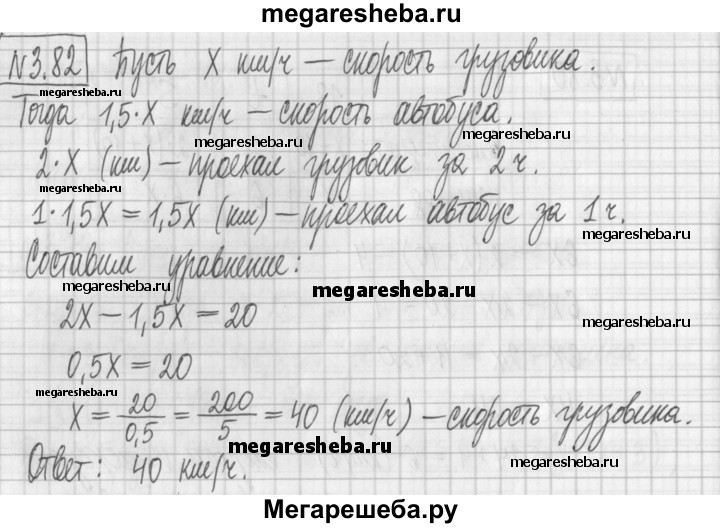 megaresheba.ru
N3.82 Пусть X км/ч — скорость грузовика.
megaresheba.ru
Тогда 1,5·X км/ч — скорость автобуса.
megaresheba.ru
2·X (км) — проехал грузовик за 2 ч.
megaresheba.ru
1·1,5X = 1,5X (км) — проехал автобус за 1 ч.
megaresheba.ru
Составим уравнение:
megaresheba.ru megaresheba.ru
2X – 1,5X = 20
megaresheba.ru
0,5X = 20
megaresheba.ru
X = 20/0,5 = 200/5 = 40 (км/ч) — скорость грузовика.
megaresheba.ru
Ответ: 40 км/ч.
megaresheba.ru
Мегарешеба.ру